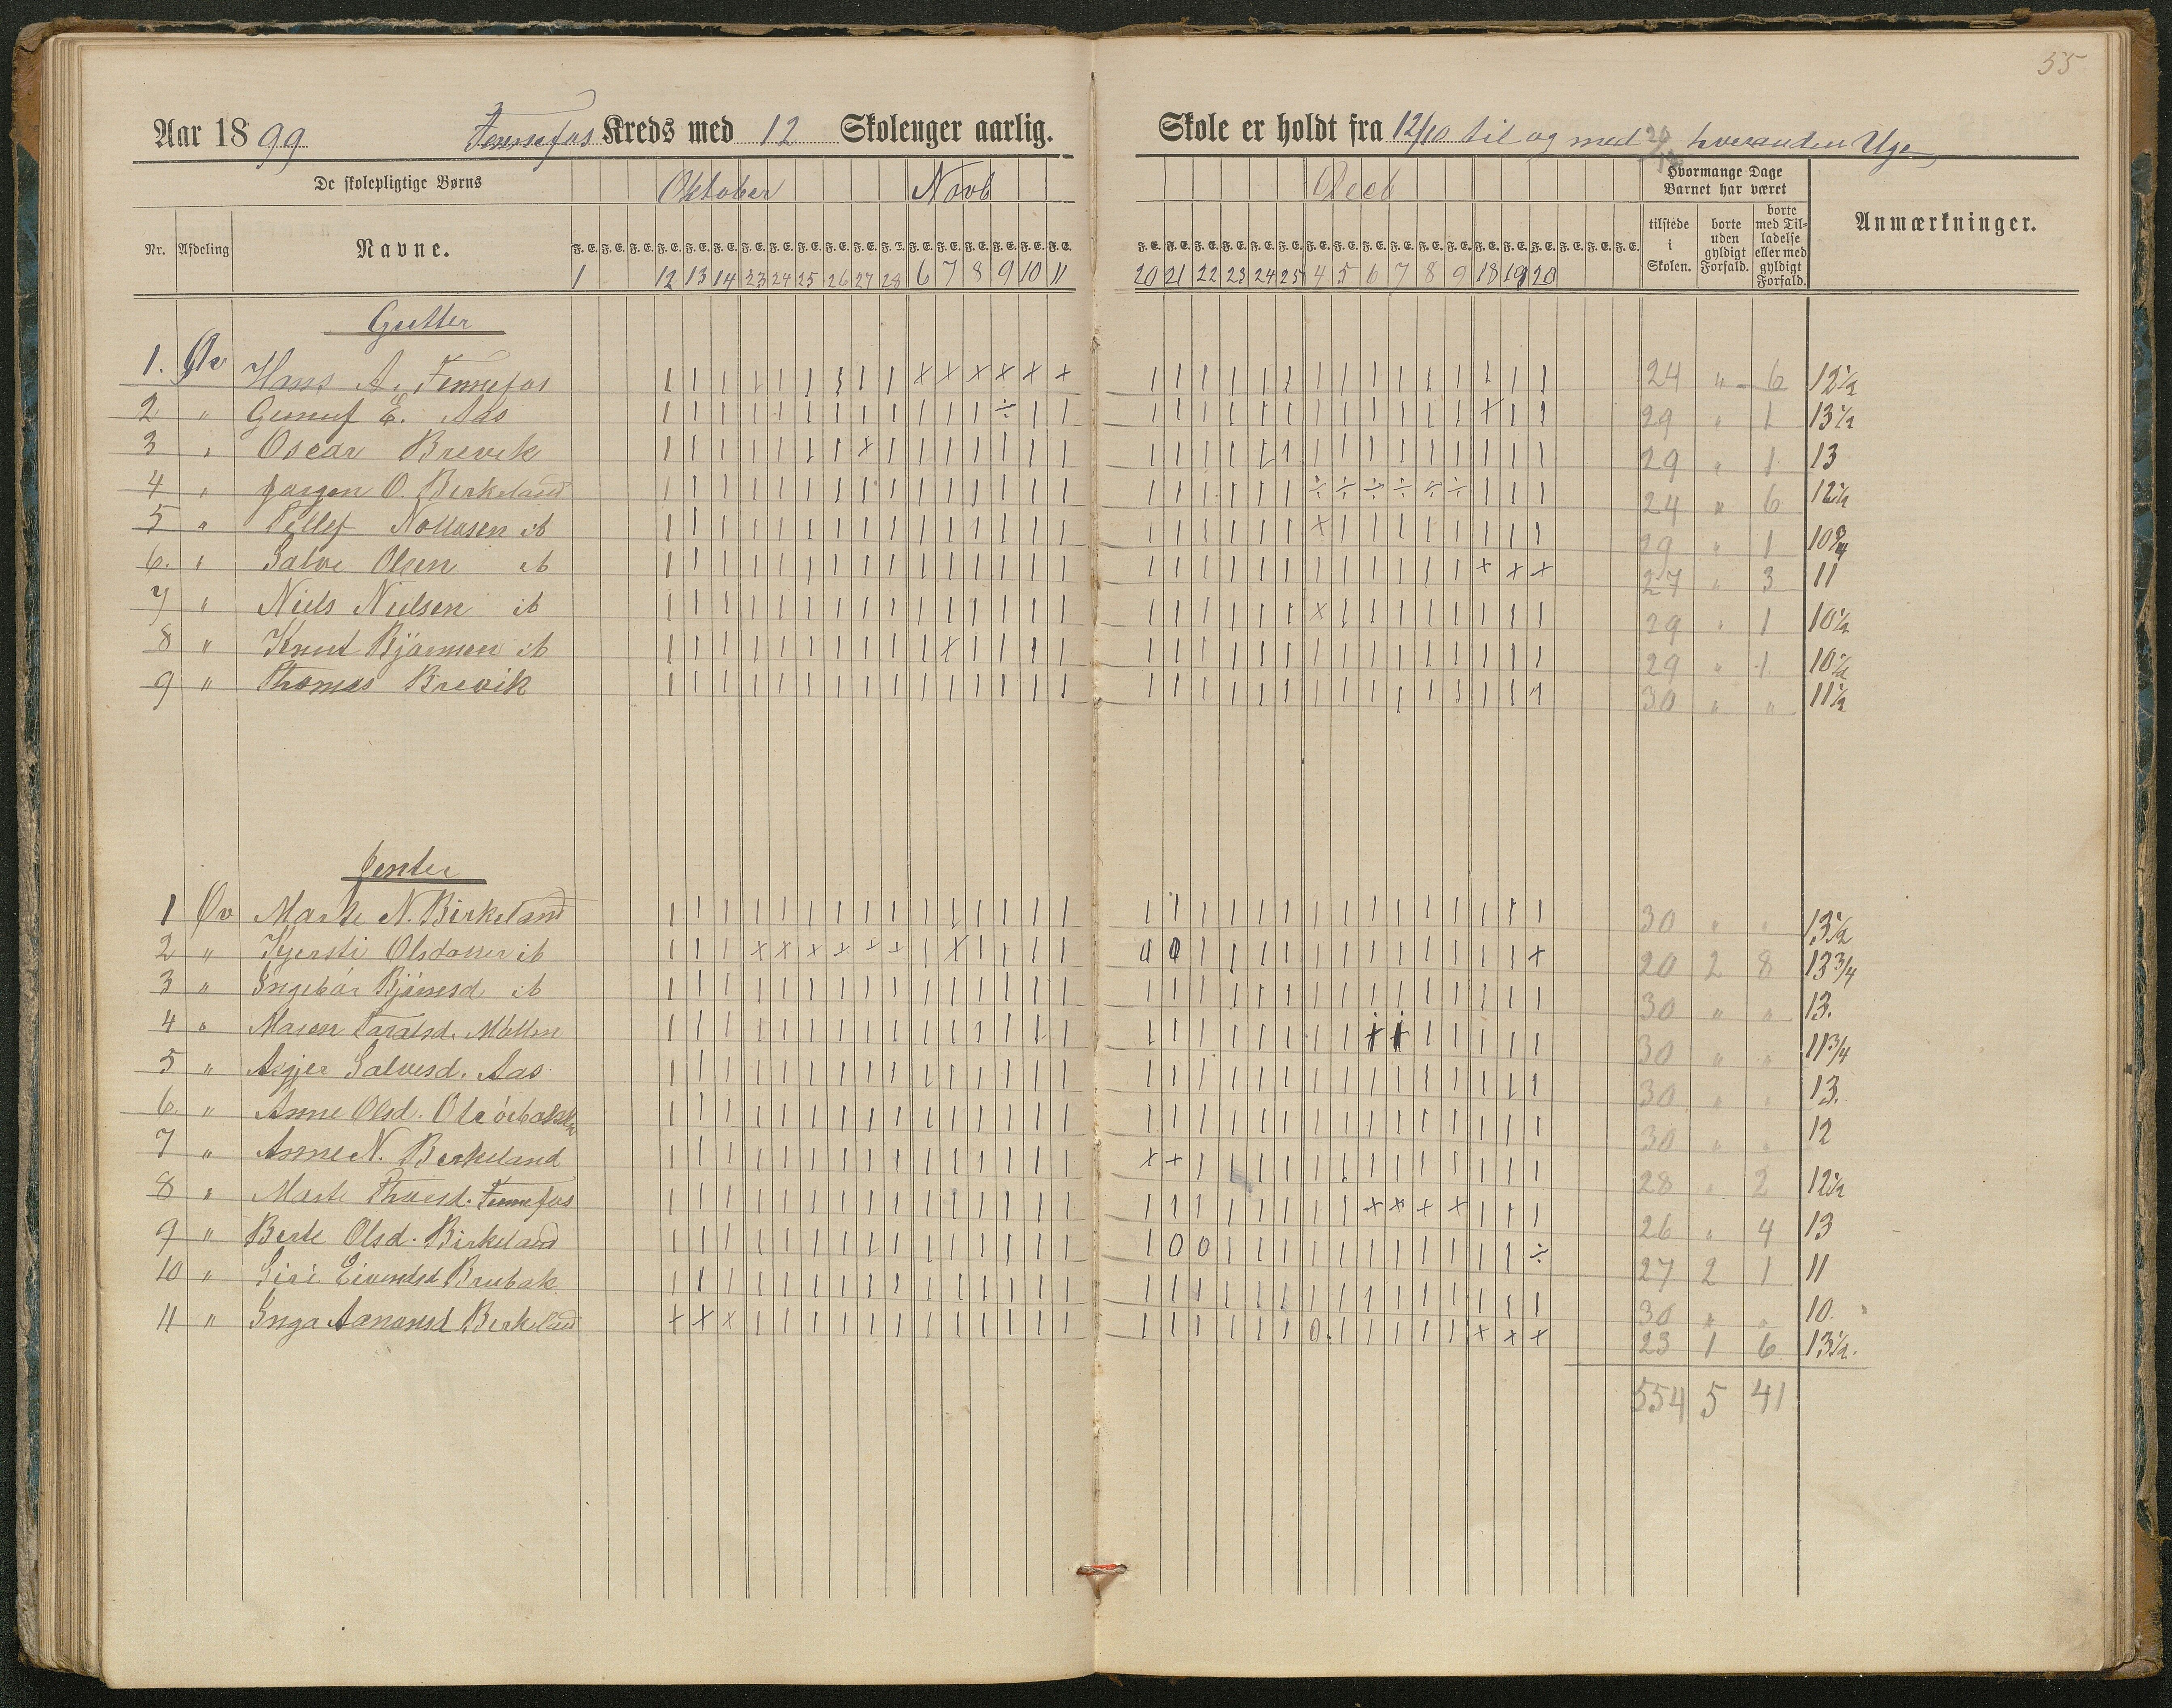 55
Aar 1899 Fennefos Kreds med 12 Skoleuger aarlig. Skole er holdt fra 12/10 til og med 20/12 hveranden Uge
De skolepligtige Børns Oktober Novb Decb Hvormange Dage Barnet har været
Nr. Afdeling Navne. tilstede i Skolen. borte uden gyldigt Forfald. borte med Tilladelse eller med gyldigt Forfald. Anmærkninger.
F. E. F. E. F. E. F. E. F. E. F. E. F. E. F. E. F. E. F. E. F. E. F. E. F. E. F. E. F. E. F. E. F. E. F. E. F. E. F. E. F. E. F. E. F. E. F. E. F. E. F. E. F. E. F. E. F. E. F. E. F. E. F. E. F. E. F. E. F. E. F. E.
1 12 13 14 23 24 25 26 27 28 6 7 8 9 10 11 20 21 22 23 24 25 4 5 6 7 8 9 18 19 20
Gutter
1. Øv Hans A. Fennefos | | | | | | | | | × × × × × × | | | | | | | | | | | | | | | 24 " 6 12½
2 " Gunuf E. Aas | | | | | | | | | | | | ÷ | | | | | | | | | | | | | | × | | 29 " 1 13½
3 " Oscar Brevik | | | | | | | × | | | | | | | | | | | | | | | | | | | | | | 29 " 1 13
4 " Jørgen O. Birkeland | | | | | | | | | | | | | | | | | | | | | ÷ ÷ ÷ ÷ ÷ ÷ | | | 24 " 6 12½
5 " Tellef Nollusen ib | | | | | | | | | | | | | | | | | | | | | × | | | | | | | | 29 " 1 10¾
6. " Salve Olsen ib | | | | | | | | | | | | | | | | | | | | | | | | | | | × × × 27 " 3 11
7 " Niels Nielsen ib | | | | | | | | | | | | | | | | | | | | | × | | | | | | | | 29 " 1 10½
8 " Knut Bjørnsen ib | | | | | | | | | | × | | | | | | | | | | | | | | | | | | | 29 " 1 10½
9 " Thomas Brevik | | | | | | | | | | | | | | | | | | | | | | | | | | | | | | 30 " " 11½
Jenter
1 Øv Marte N. Birkeland | | | | | | | | | | | | | | | | | | | | | | | | | | | | | | 30 " " 13½
2 " Kjersti Olsdatter ib | | | × × × × × × | × | | | | 0 0 | | | | | | | | | | | | × 20 2 8 13¾
3 " Ingebor Bjørnsd ib | | | | | | | | | | | | | | | | | | | | | | | | | | | | | | 30 " " 13.
4 " Maren Taralsd. Mollen | | | | | | | | | | | | | | | | | | | | | | | + + | | | | | 30 " " 11¾
5 " Asgjer Salvesd. Aas | | | | | | | | | | | | | | | | | | | | | | | | | | | | | | 30 " " 13.
6. " Anne Olsd. | | | | | | | | | | | | | | | | | | | | | | | | | | | | | | 30 " " 12
7 " Anne N. Berkeland | | | | | | | | | | | | | | | × × | | | | | | | | | | | | | 28 " 2 12½
8 " Marte Thoresd. Fennefos | | | | | | | | | | | | | | | | | | | | | | | × × × × | | | 26 " 4 13
9 " Berte Olsd. Birkeland | | | | | | | | | | | | | | | | 0 0 | | | | | | | | | | | ÷ 27 2 1 11
10 " Siri Eivindsd Brubak | | | | | | | | | | | | | | | | | | | | | | | | | | | | | | 30 " " 10.
11 " Inga Aanonsd Berkeland × × × | | | | | | | | | | | | | | | | | | 0 | | | | | × × × 23 1 6 13½.
554 5 41